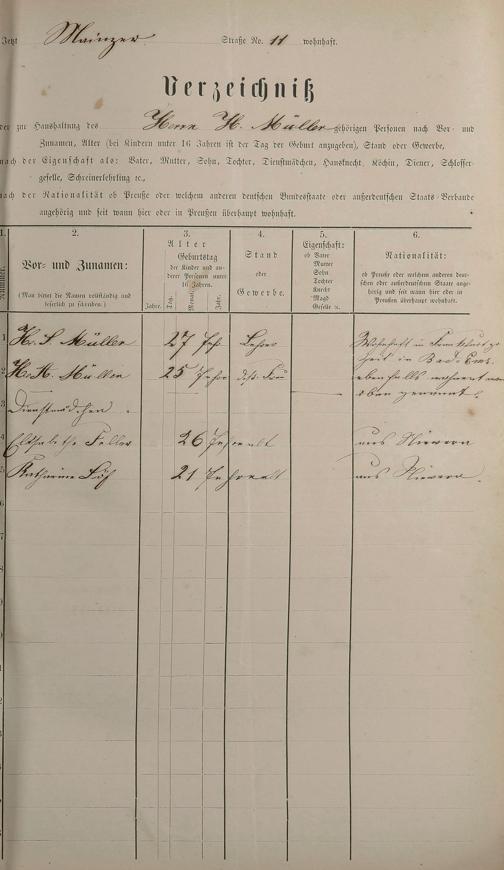 Jetzt Mainzer Straße No. 11 wohnhaft.
Verzeichniß
der zur Haushaltung des Herrn H. Müller gehörigen Personen nach Vor- und
Zunamen, Alter (bei Kindern unter 16 Jahren ist der Tag der Geburt anzugeben), Stand oder Gewerbe,
nach der Eigenschaft als: Vater, Mutter, Sohn, Tochter, Dienstmädchen, Hausknecht, Köchin, Diener, Schlosser-
geselle, Schreinerlehrling ꝛc.,
nach der Nationalität ob Preuße oder welchem anderen deutschen Bundesstaate oder außerdeutschen Staats-Verbande
angehörig und seit wann hier oder in Preußen überhaupt wohnhaft.
1. 2. 3. 4. 5. 6.
Nummer.
Vor- und Zunamen:
(Man bittet die Namen vollständig und
leserlich zu schreiben.)
Alter
Geburtstag
der Kinder und an-
derer Personen unter
16 Jahren.
Jahre. Tag. Monat. Jahr.
Stand
oder
Gewerbe.
Eigenschaft:
ob Vater
Mutter
Sohn
Tochter
Knecht
Magd
Geselle ꝛc.
Nationalität:
ob Preuße oder welchem anderen deut-
schen oder außerdeutschen Staate ange-
hörig und seit wann hier oder in
Preußen überhaupt wohnhaft.
1 H. S. Müller 27 Jahr Wohnhaft in Frankfurt
in Bad-Ems.
2 Müller 25 Jahr Frau ebenfalls
oben genannt.
3 Dienstmädchen.
4 Elisabethe Feller 26 Jahre alt aus Nievern
5 Katharine 21 Jahre alt aus Nievern.